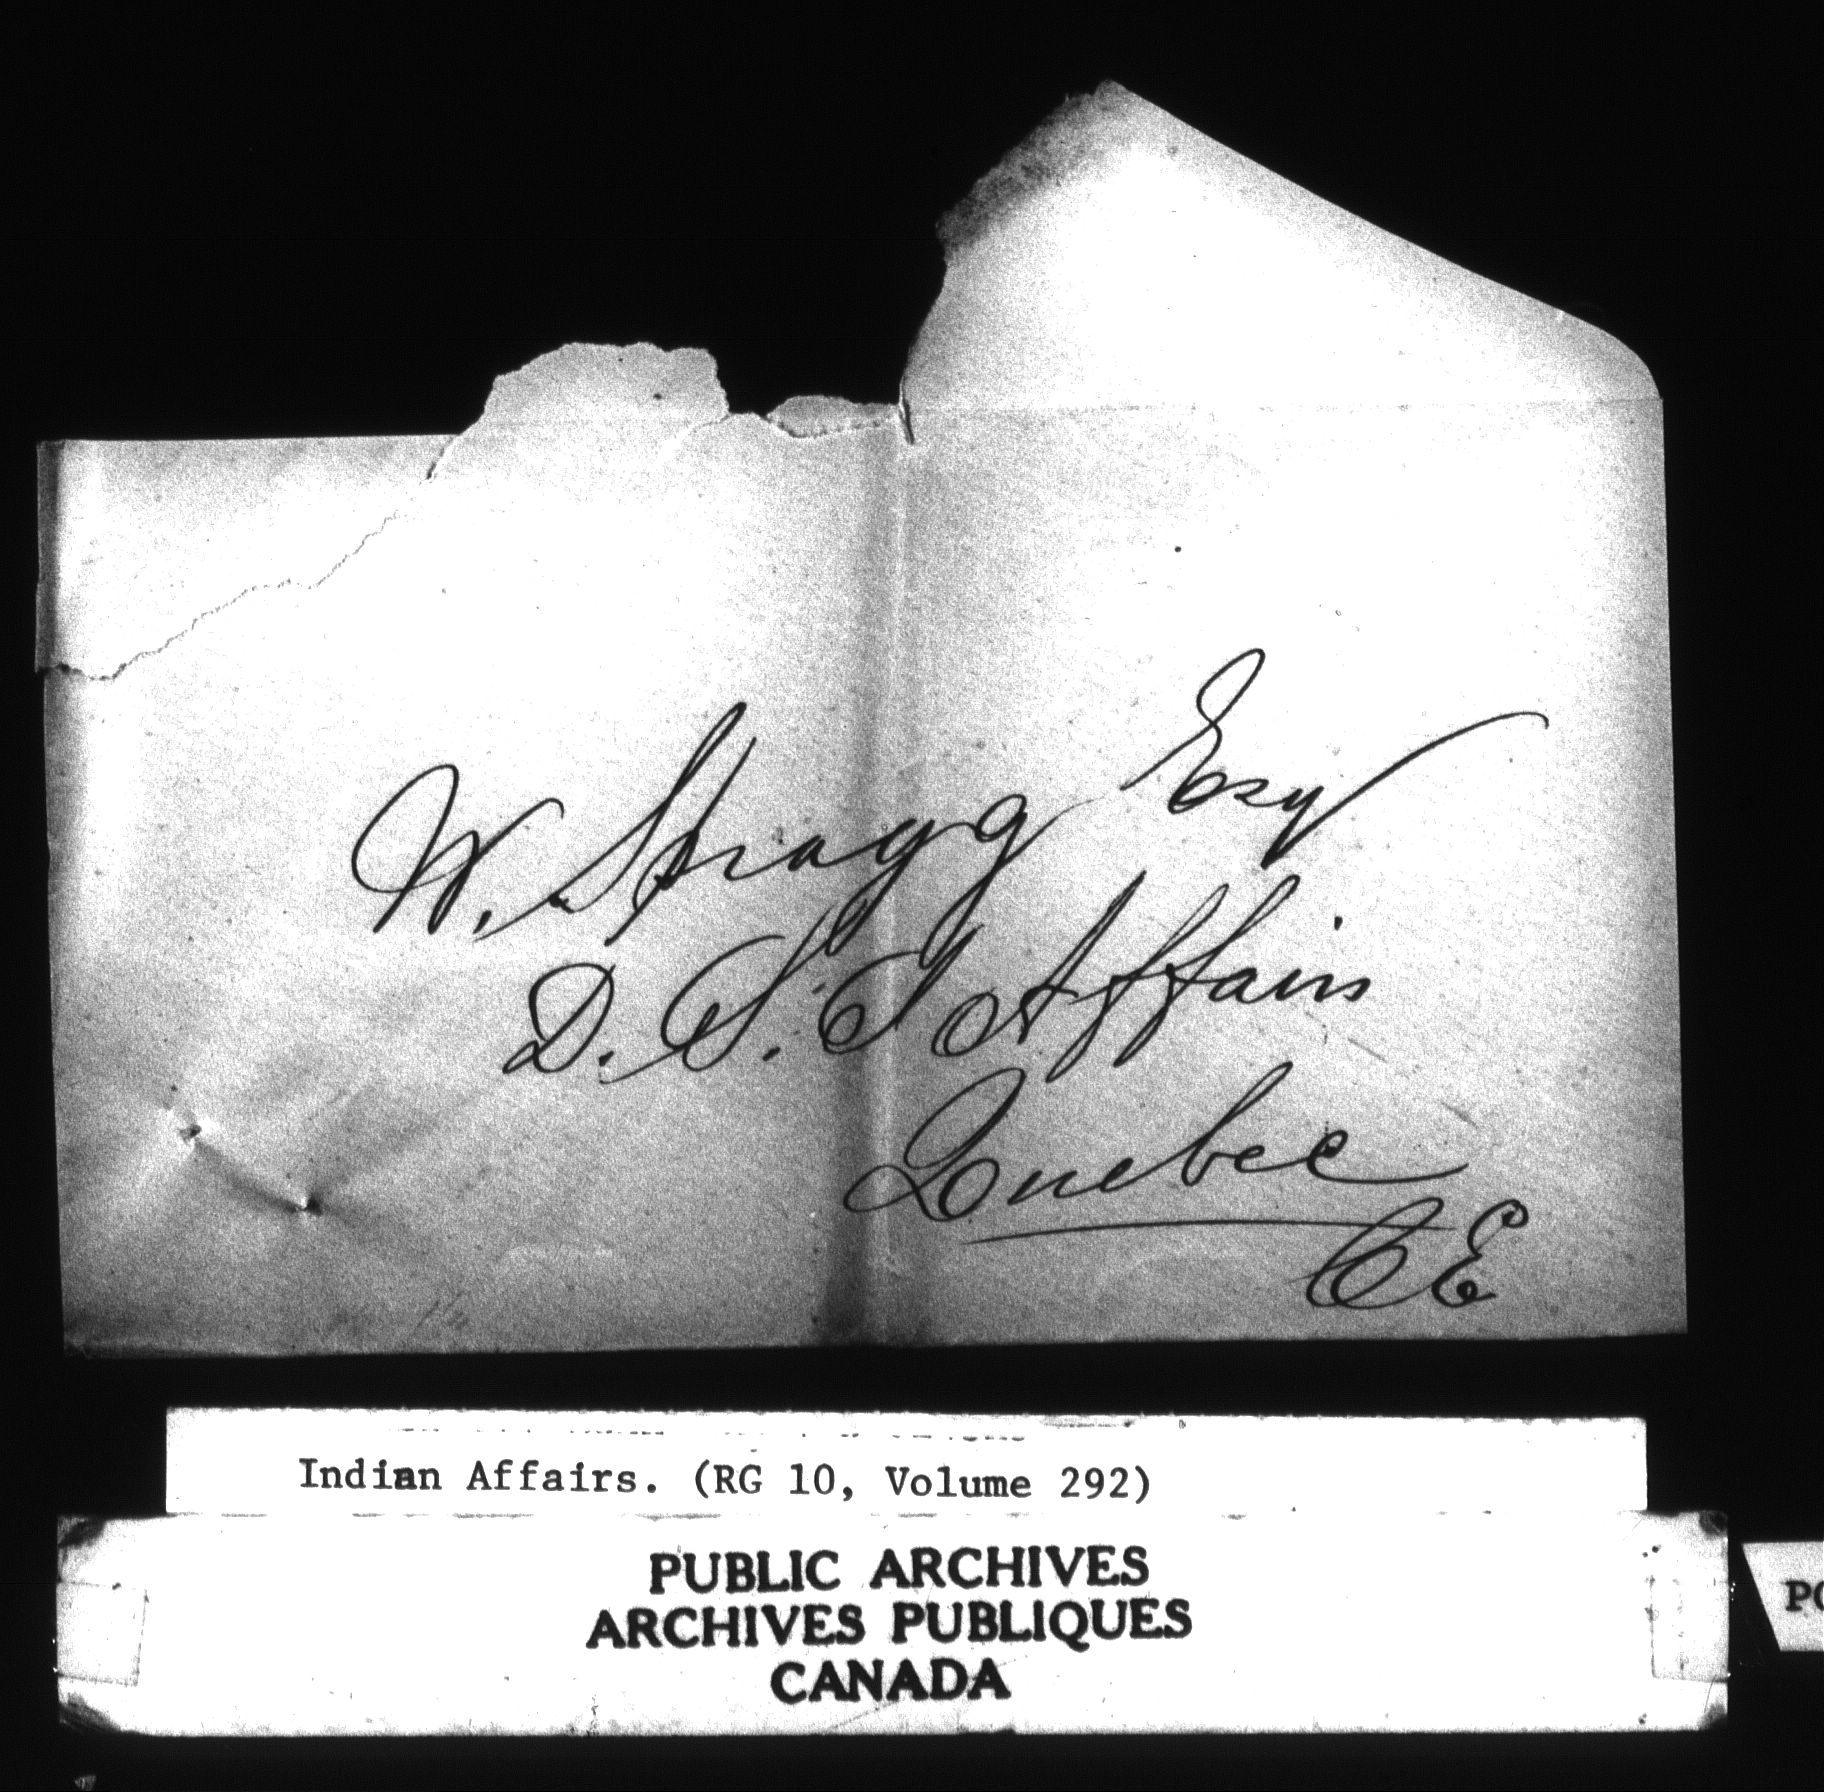 W. Spragg Esq
D. S. I Affairs
Quebec
CE
Indian Affairs. (RG 10, Volume 292)
PUBLIC ARCHIVES
ARCHIVES PUBLIQUES
CANADA